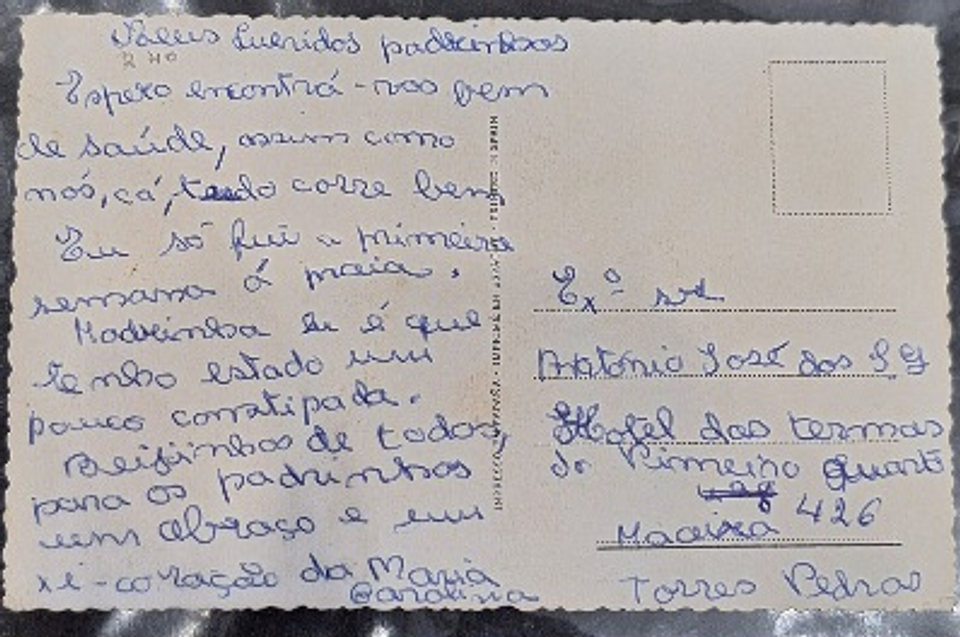 Meus Queridos padrinhos
Espero encontrá-vos bem
de saúde, assim como
nós, cá, tudo corre bem,
Eu só fui a primeira
semana á praia.
Madrinha Eu é que
tenho estado um
pouco constipada.
Beijinhos de todos,
para os padrinhos
um abraço e um
xi-coração da Maria
Carolina
Ex.º
António José dos
Hotel das termas
do Pimeiro quarto
426
Maceira
Torres Vedras